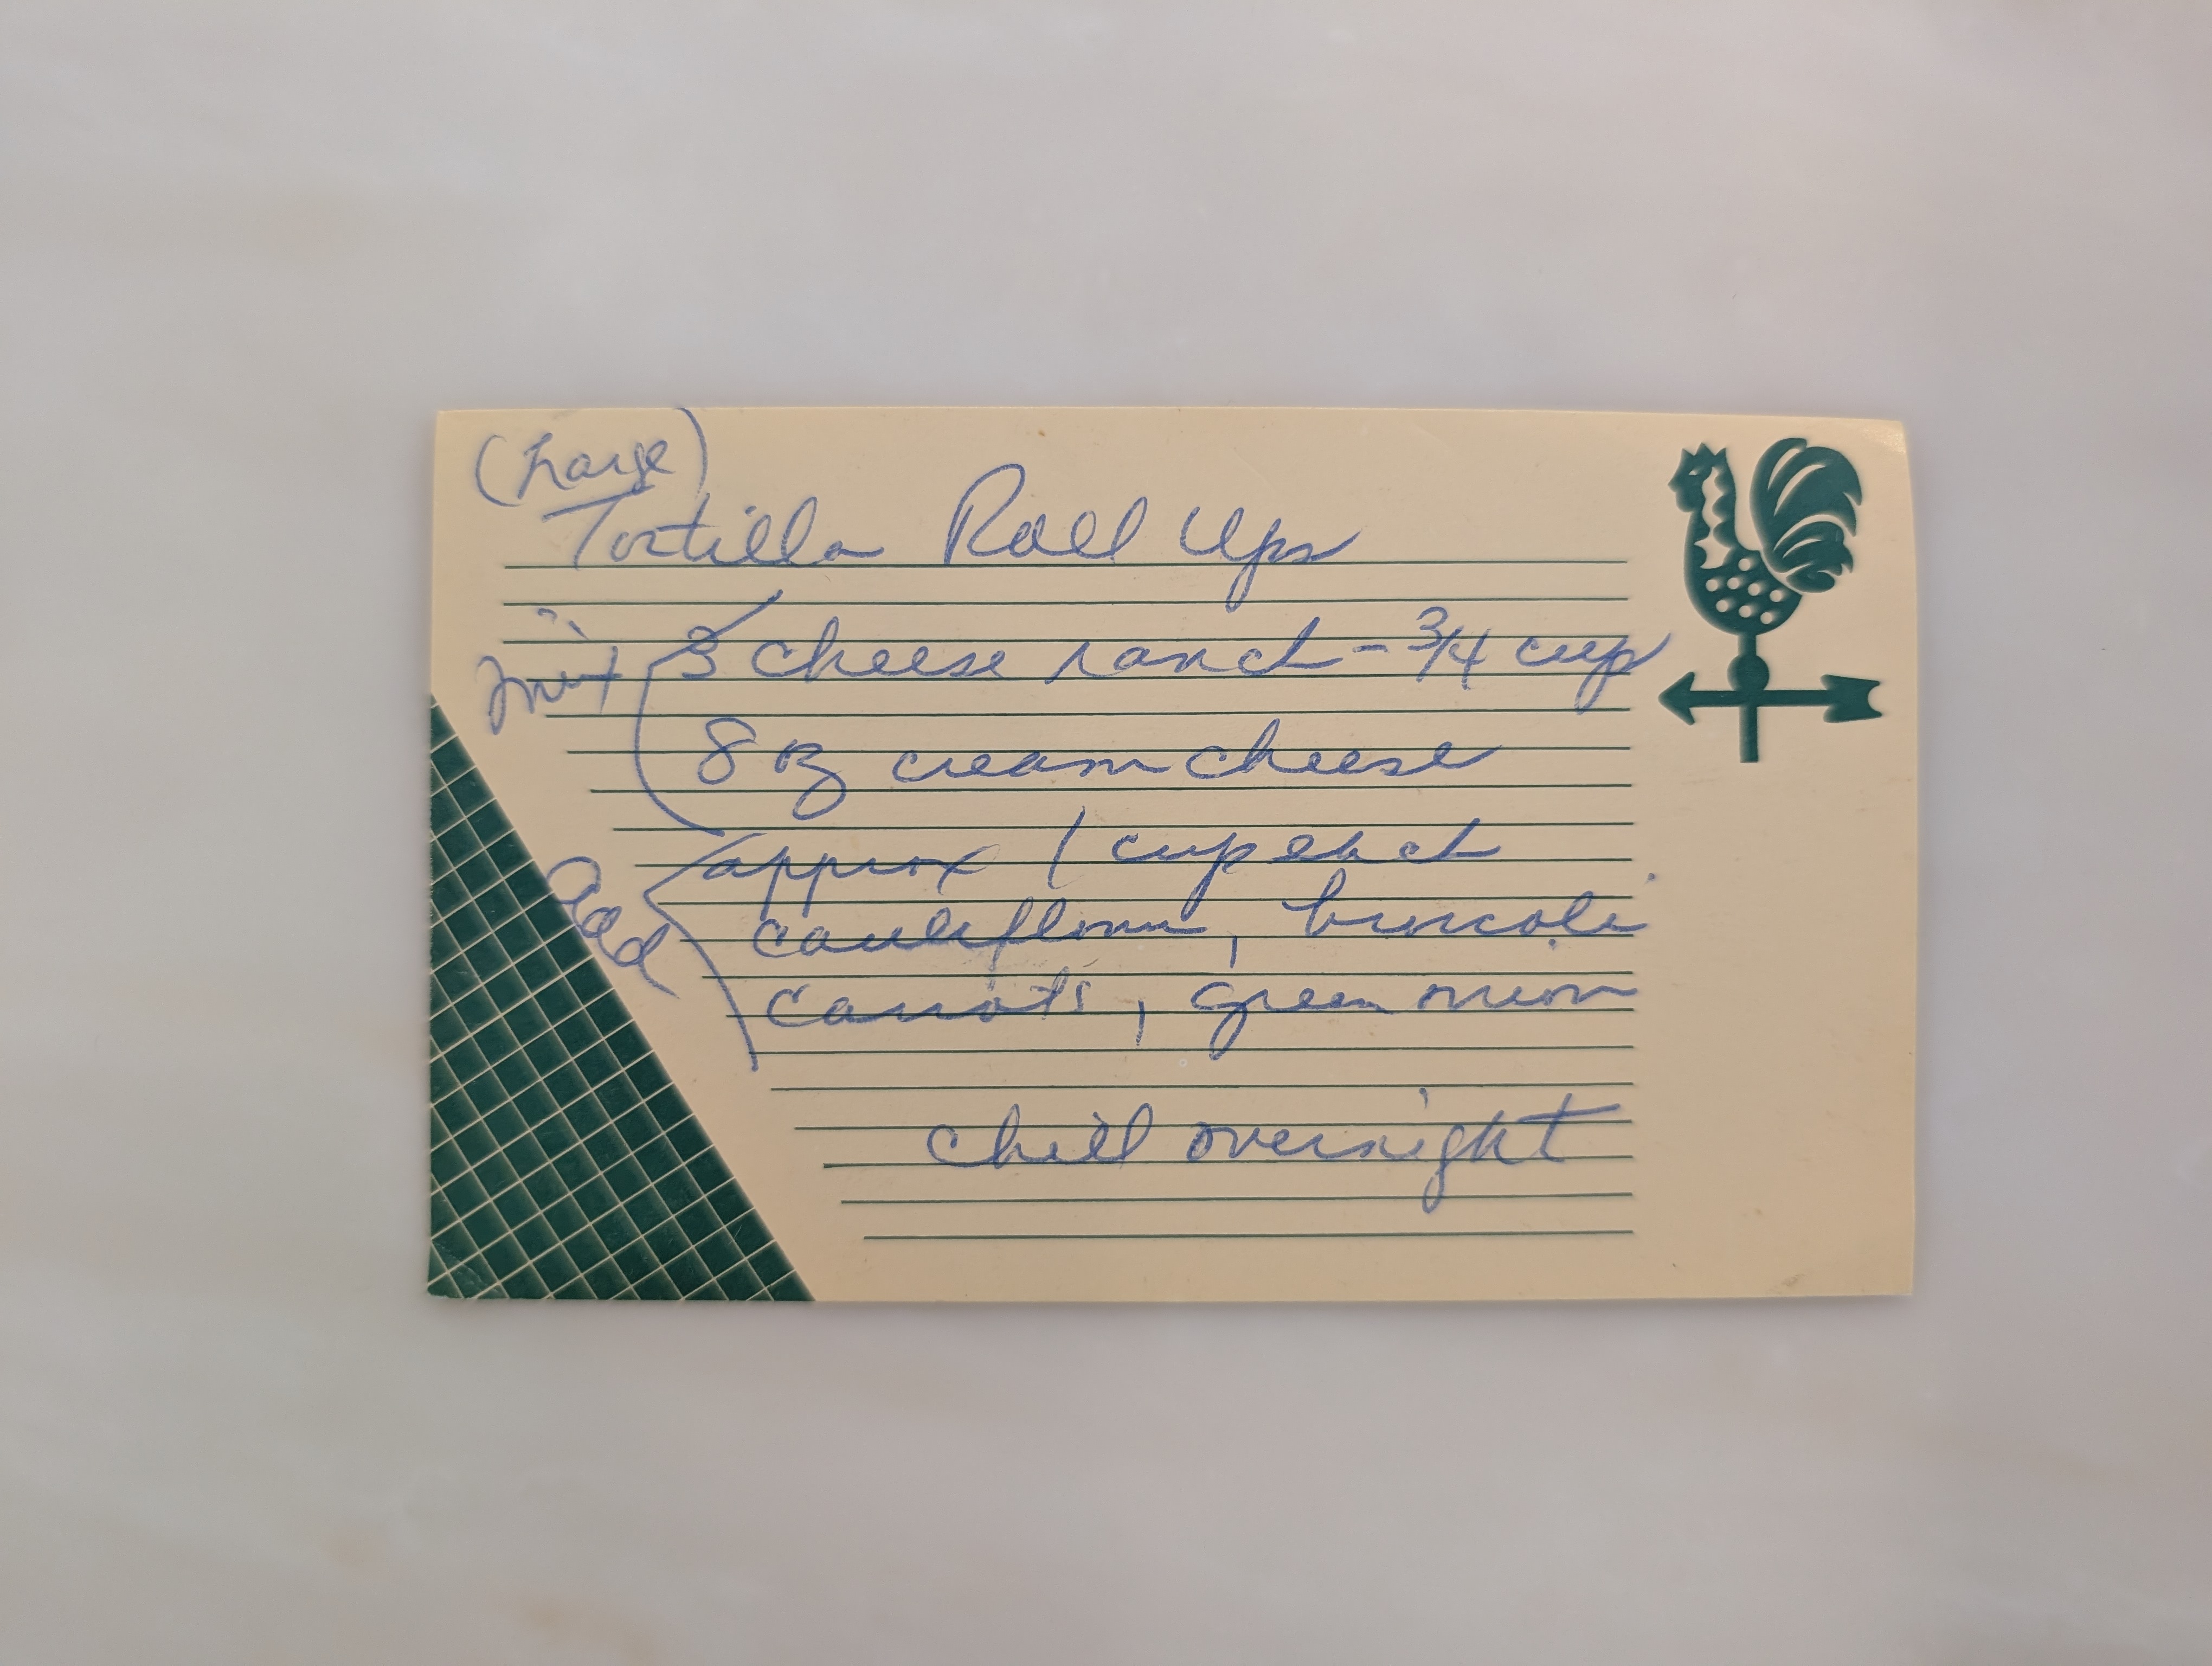 (Large)
Tortilla Roll Ups
mix 3 cheese ranch - 3/4 cup
8 oz cream cheese
approx 1 cup each
add cauliflower, broccoli
carrots, green onion
chill overnight